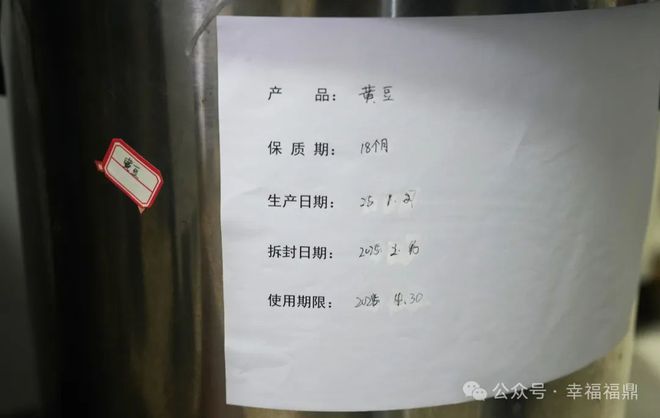 产 品： 黄豆
保 质 期： 18个月
生产日期： 25. 1.
拆封日期： 2025.
使用期限： 4.30
黄豆
公众号 · 幸福福鼎